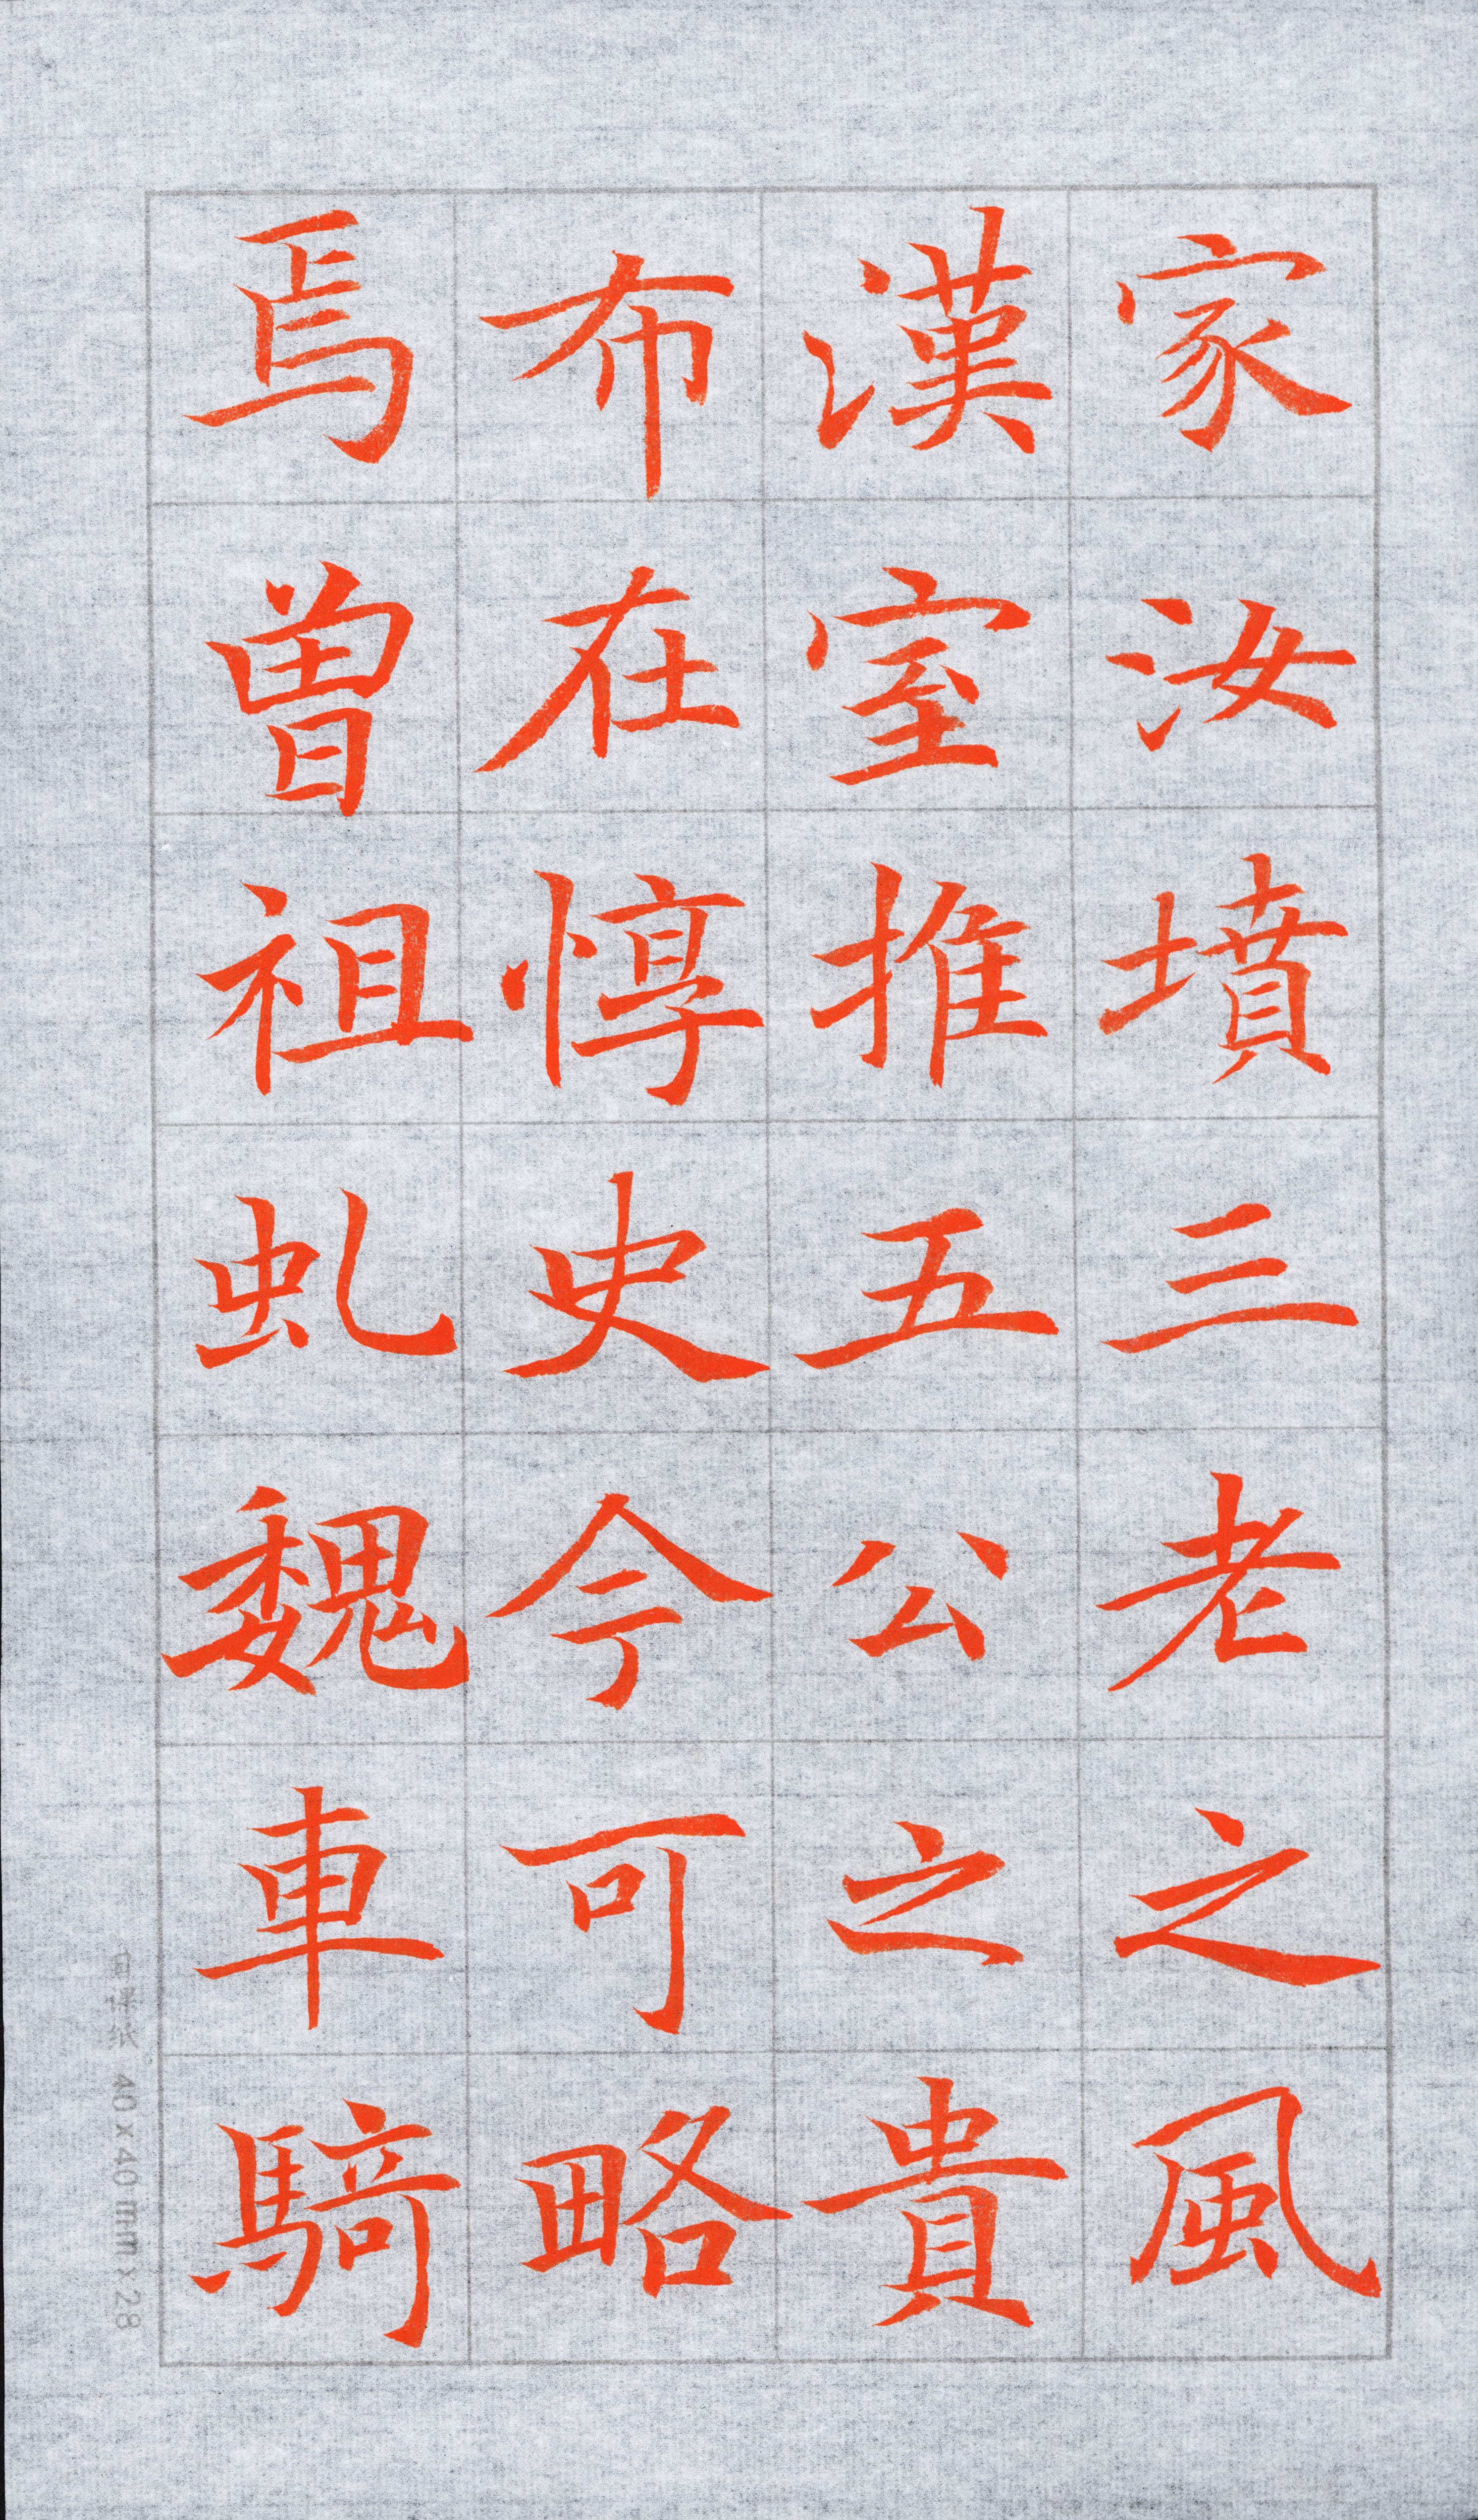 家汝墳三老之風
漢室推五公之貴
布在惇史今可略
焉曾祖虬魏車騎
白譯纸 40x40mmx28